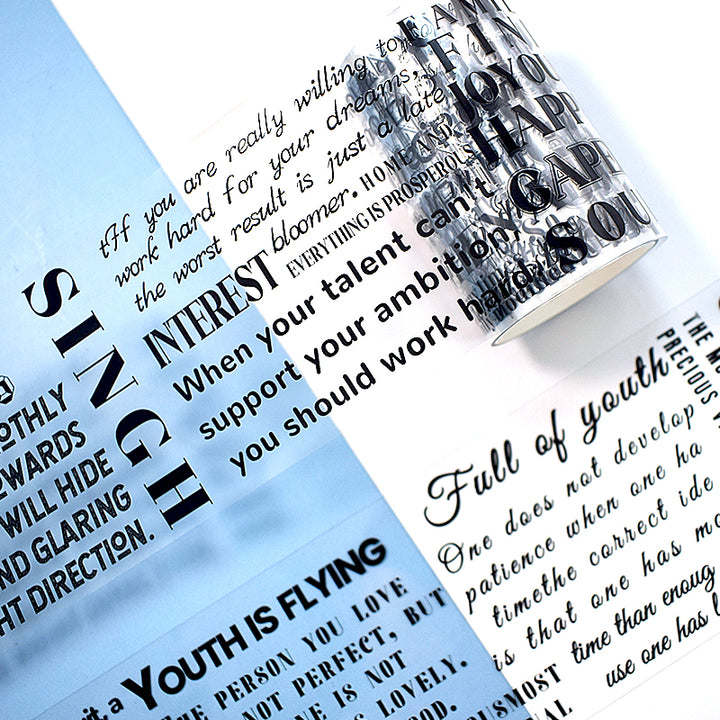 tIf you are really willing to
work hard for your dreams,
the worst result is just a late
bloomer.
HOME AND
EVERYTHING IS PROSPEROUS
INTEREST
When your talent can't
support your ambition,
you should work hard
SINGH
FIN
JOYOU
HAPP
CAPE
SOU
OTHLY
EWARDS
WILL HIDE
ND GLARING
HT DIRECTION.
Full of youth
One does not develop
patience when one ha
timethe correct ide
is that one has mo
time than enoug
use one has l
THE M
PRECIOUS
it a
YOUTH IS FLYING
THE PERSON YOU LOVE
NOT PERFECT, BUT
NE IS NOT
S LOVELY.
OOD.
OUSMOST
AL